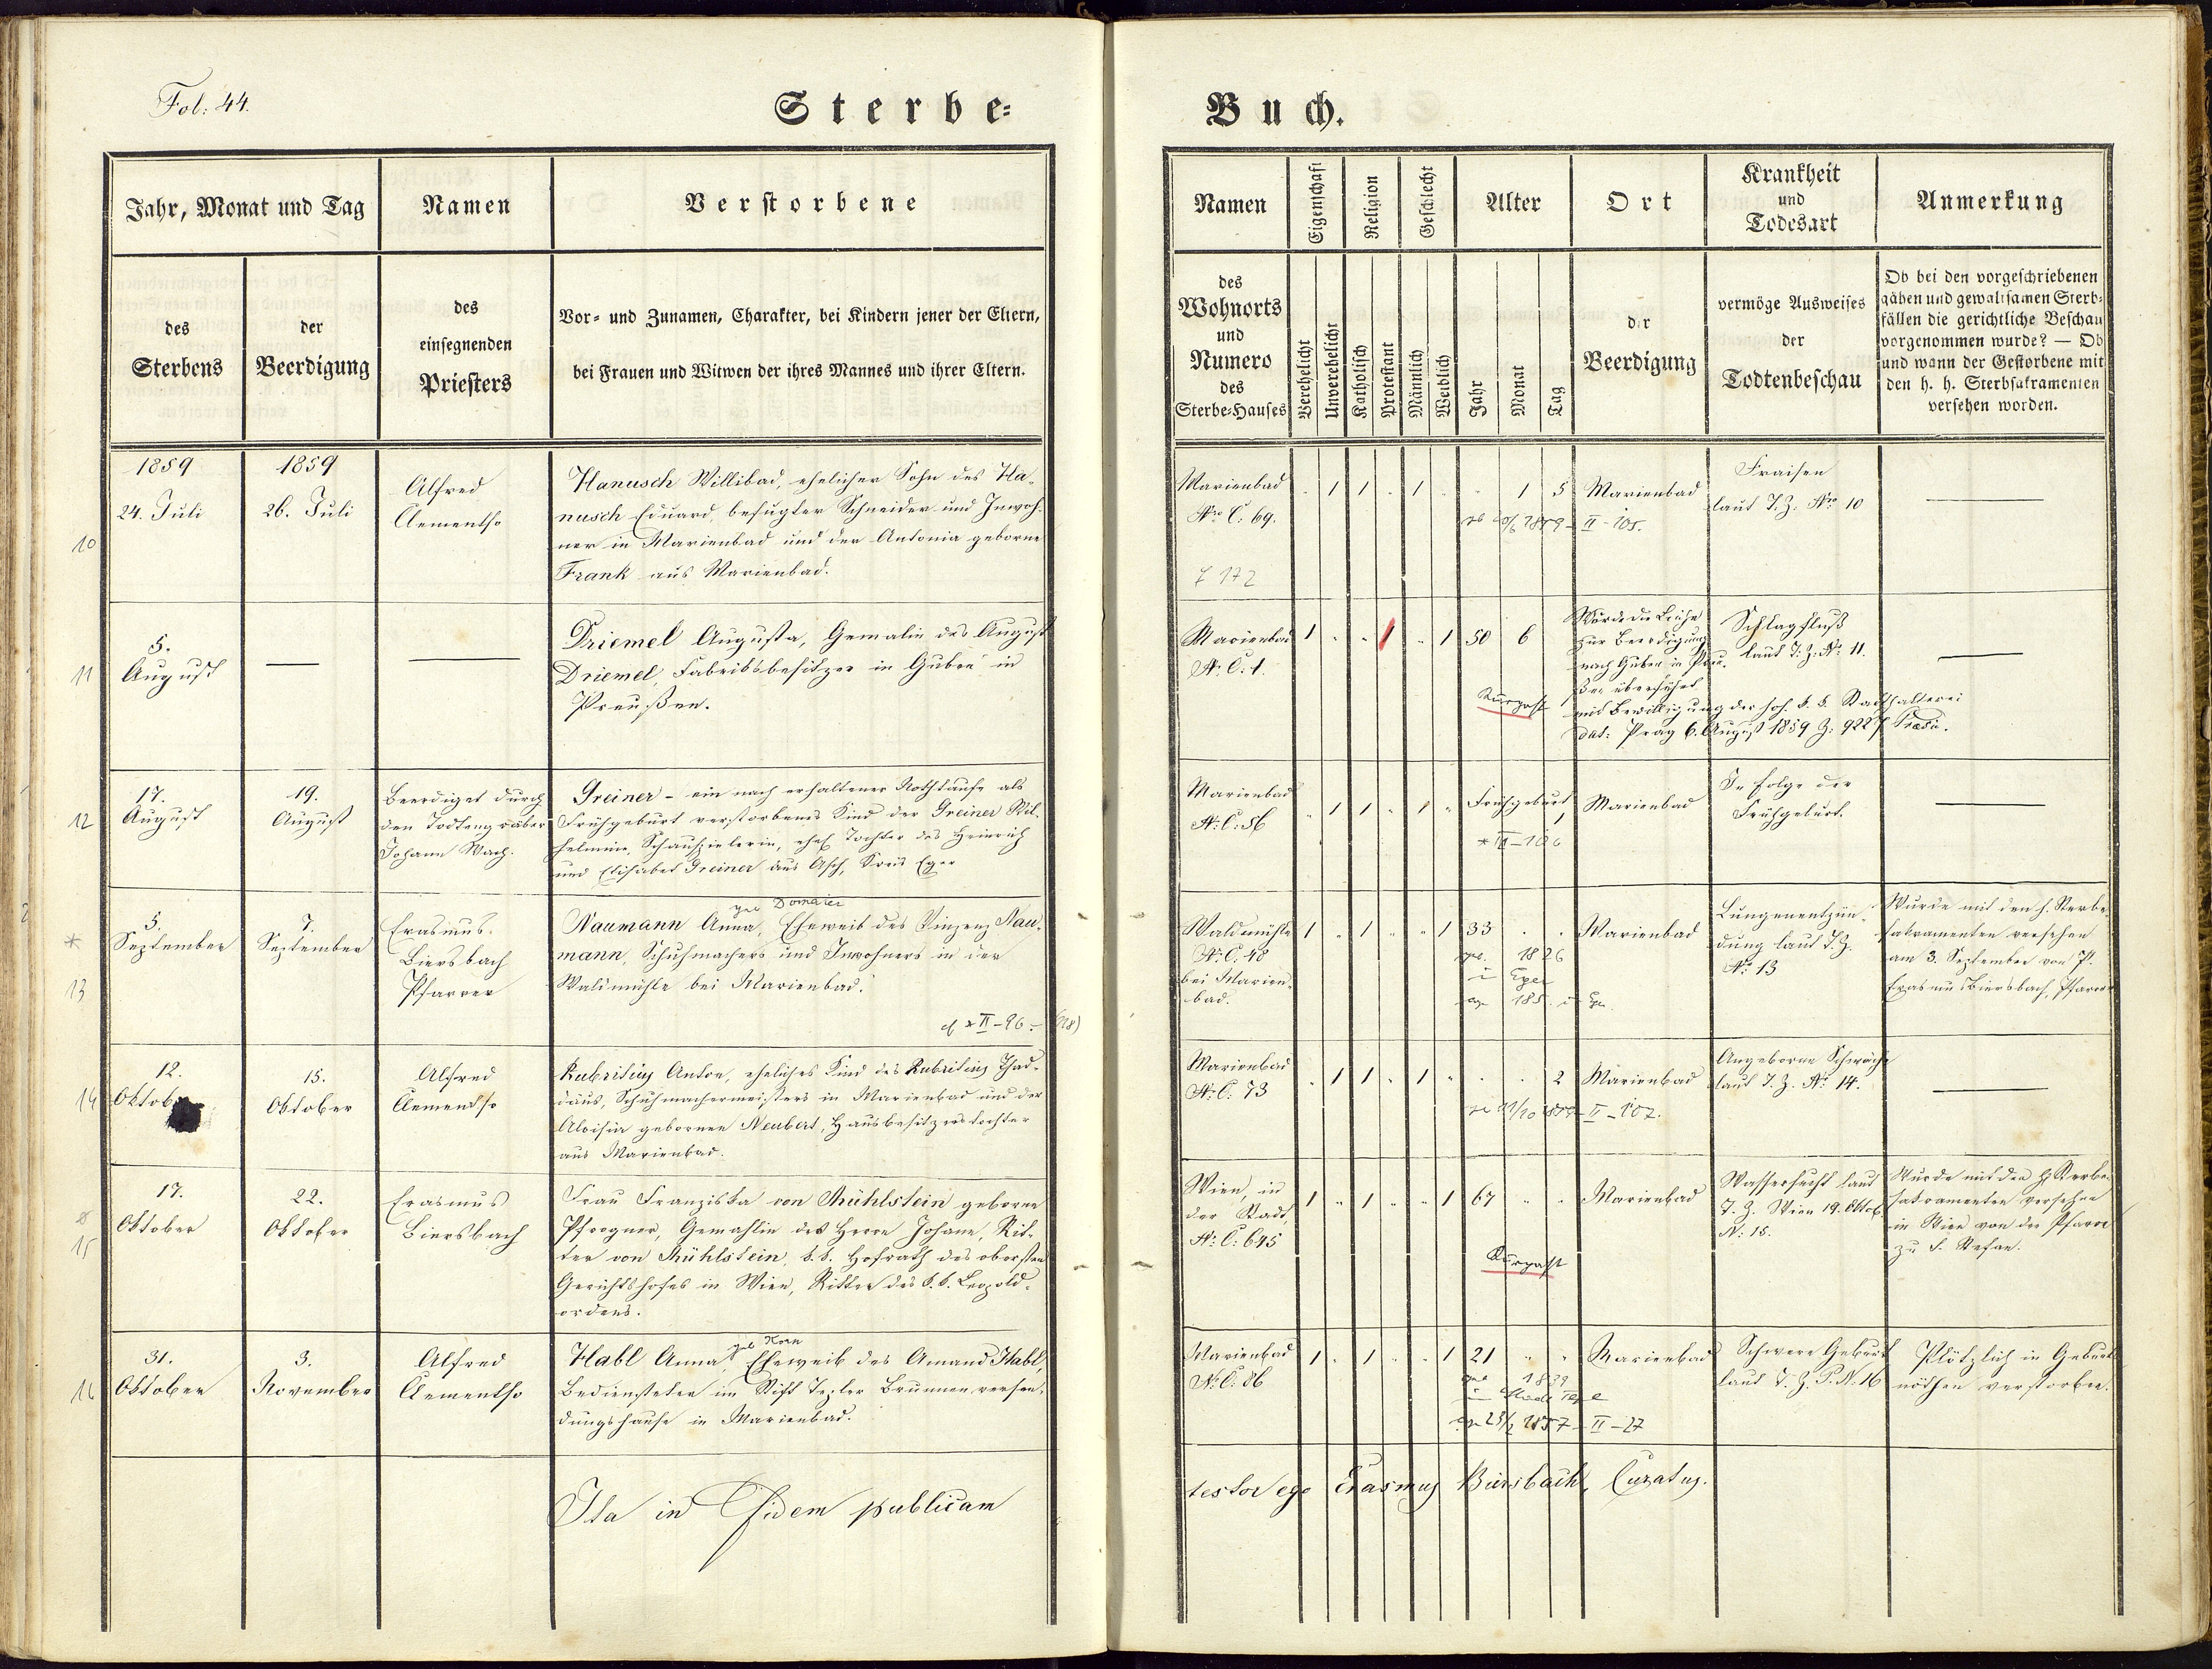 Fol: 44.
Sterbe=
Buch.
Jahr, Monat und Tag
Namen
Verstorbene
des
Sterbens
der
Beerdigung
des
einsegnenden
Priesters
Vor= und Zunamen, Charakter, bei Kindern jener der Eltern,
bei Frauen und Witwen der ihres Mannes und ihrer Eltern.
Namen
Eigenschaft
Religion
Geschlecht
Alter
Ort
Krankheit
und
Todesart
Anmerkung
des
Wohnorts
und
Numero
des
Sterbe=Hauses
Verehelicht
Unverehelicht
Katholisch
Protestant
Männlich
Weiblich
Jahr
Monat
Tag
der
Beerdigung
vermöge Ausweises
der
Todtenbeschau
Ob bei den vorgeschriebenen
gähen und gewaltsamen Sterb=
fällen die gerichtliche Beschau
vorgenommen wurde? — Ob
und wann der Gestorbene mit
den h. h. Sterbsakramenten
versehen worden.
10
1859
24. Juli
1859
26. Juli
Alfred
Clementso
Hanusch Willibad, ehelicher Sohn des Ha-
nusch Eduard, befugter Schneider und Inwoh-
ner in Marienbad und der Antonia geborne
Frank aus Marienbad.
Marienbad
Nro C: 69.
1 1 1 1 5
Marienbad
II-105.
Fraisen
laut T. Z. Nro 10
—
7 172
11
5.
August
—
—
Driemel Augusta, Gemalin des August
Driemel, Fabriksbesitzer in Guben in
Preußen.
Marienbad
N. C: 1.
1 1 1 50 6
Kurgast
Wurde die Leiche
zur Beerdigung
nach Guben in Preu-
ßen überführt
mit Bewilligung der hoh. k. k. Statthalterei
dat: Prag 6. August 1859 Z: 922
Schlagfluß
laut T: Z: N: 11.
—
12
17.
August
19.
August
Beerdiget durch
den Todtengräber
Johann Wach.
Greiner - ein nach erhaltener Nothtaufe als
Frühgeburt verstorbenes Kind der Greiner Wil-
helmine, Schauspielerin, ehel Tochter des Heinrich
und Elisabet Greiner aus Asch, Kreis Eger
Marienbad
N: C: 56
1 1 1
Frühgeburt
Marienbad
In Folge der
Frühgeburt.
—
*
13
5.
September
7.
September
Erasmus
Biersbach
Pfarrer
Naumann Anna, Eheweib des Vinzenz Nau-
mann, Schuhmachers und Inwohners in der
Waldmühle bei Marienbad.
II-96
Waldmühle
N: C. 48
bei Marien-
bad.
1 1 1 33
1826
in Eger
Marienbad
Lungenentzün-
dung laut T. Z.
N: 13
Wurde mit den h. Sterbe-
sakramenten versehen
am 3. September von P.
Erasmus Biersbach, Pfarrer
14
12.
Oktober
15.
Oktober
Alfred
Clementso
Kubritius Anton, eheliches Kind des Kubritius Thad-
däus, Schuhmachermeisters in Marienbad und der
Aloisia gebornen Neubert, Hausbesitzerstochter
aus Marienbad.
Marienbad
N: C: 73
1 1 1 2
II-107.
Marienbad
Angeborne Schwäche
laut T. Z. N: 14.
—
15
17.
Oktober
22.
Oktober
Erasmus
Biersbach
Frau Franziska von Mühlstein geborne
Pfrogner, Gemahlin des Herrn Johann, Rit-
ter von Mühlstein, k. k. Hofrath des obersten
Gerichtshofes in Wien, Ritter des k. k. Leopold-
ordens.
Wien, in
der Stadt,
N: C: 645
1 1 1 67
Kurgast
Marienbad
Wassersucht laut
T. Z. Wien 19. Oktob
N: 15.
Wurde mit den h. Sterbe-
sakramenten versehen
in Wien von der Pfarre
zu S. Stefan.
16
31.
Oktober
3.
November
Alfred
Clementso
geb Korn
Habl Anna, Eheweib des Amand Habl,
Bediensteten im Stift Tepler Brunnen versen-
dungshause in Marienbad.
Marienbad
N: C: 86
1 1 1 21
1839
II-27
Marienbad
Schwere Geburt
laut T. Z. P. N. 16
Plötzlich in Geburts
nöthen verstorben.
Ita in Fidem publicam
testor ego Erasmus Biersbach, Curatus.